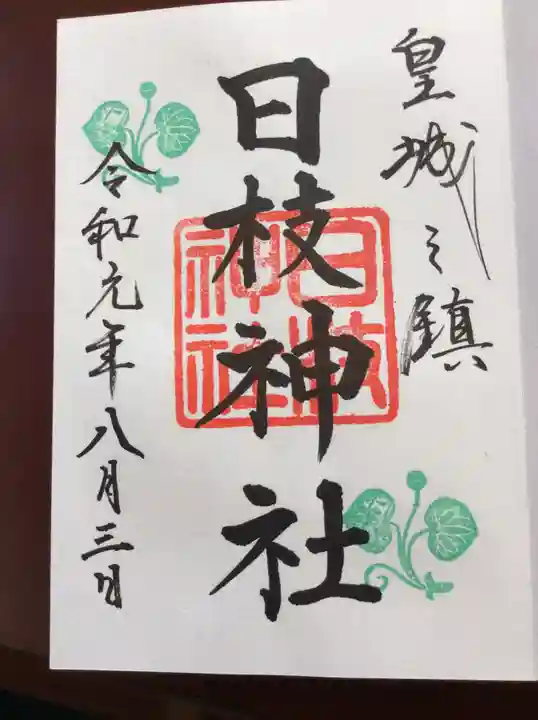 皇城之鎮
日枝神社
日枝神社
令和元年八月三日